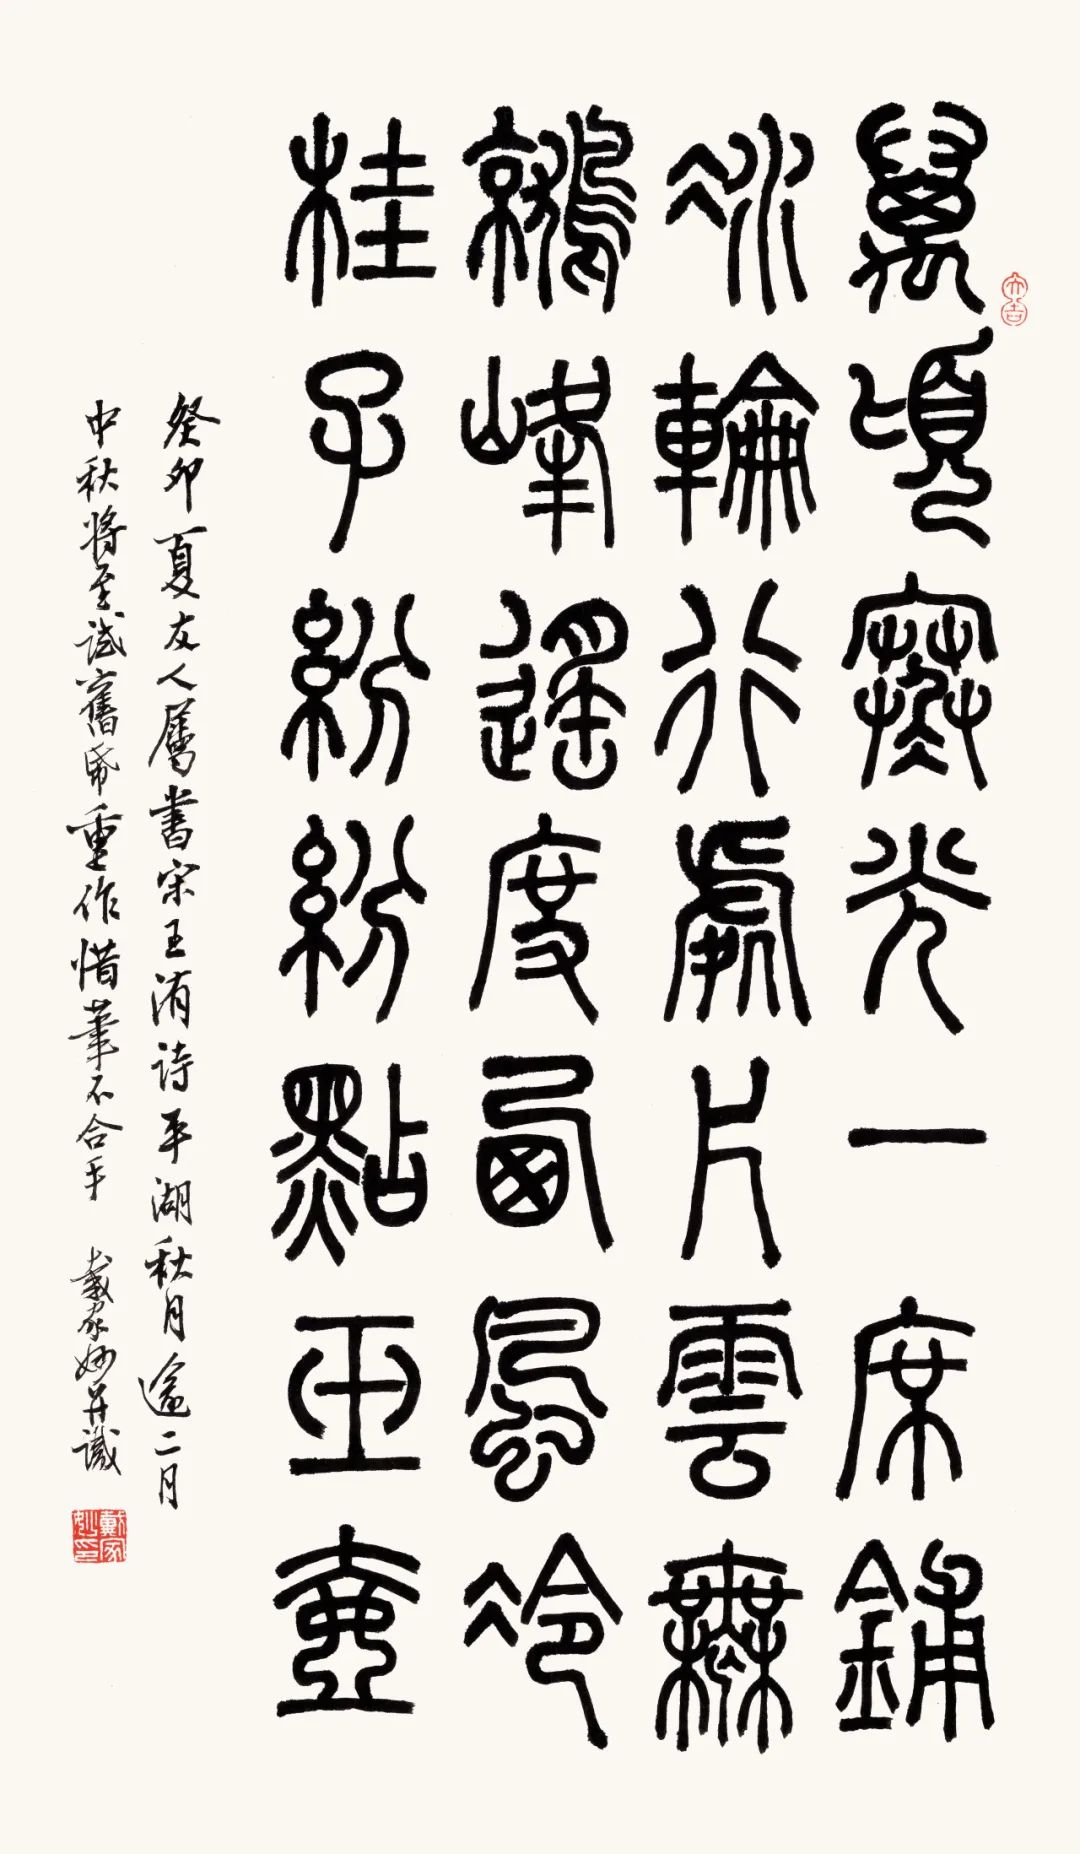 萬頃寒光一席鋪
冰輪行處片雲無
鷲峰遥度西風冷
桂子紛紛點玉壺
癸卯夏友人属書宋王洧詩平湖秋月逾二月
中秋将至試舊帋重作惜筆不合手 戴家妙并識
大吉
戴家妙印